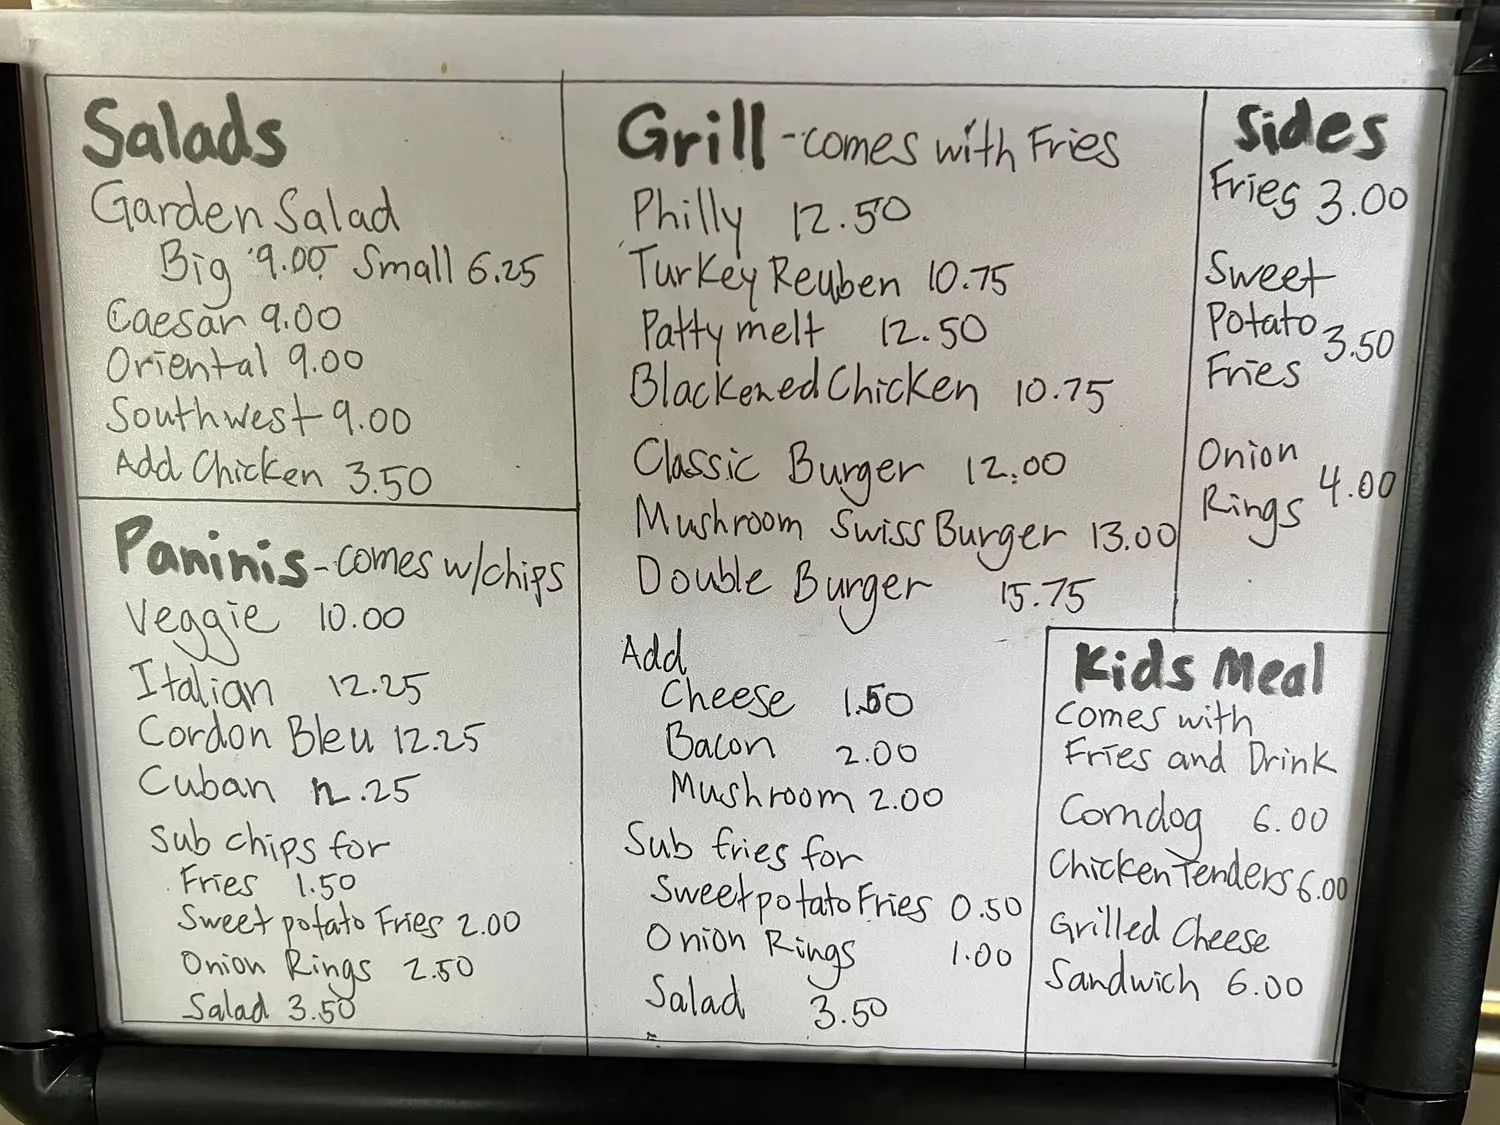 Salads
Garden Salad
Big 9.00 Small 6.25
Caesar 9.00
Oriental 9.00
Southwest 9.00
Add Chicken 3.50
Paninis - comes w/chips
Veggie 10.00
Italian 12.25
Cordon Bleu 12.25
Cuban 12.25
Sub chips for
Fries 1.50
Sweet potato Fries 2.00
Onion Rings 2.50
Salad 3.50
Grill - comes with Fries
Philly 12.50
Turkey Reuben 10.75
Patty melt 12.50
Blackened Chicken 10.75
Classic Burger 12.00
Mushroom Swiss Burger 13.00
Double Burger 15.75
Add
Cheese 1.50
Bacon 2.00
Mushroom 2.00
Sub fries for
Sweet potato Fries 0.50
Onion Rings 1.00
Salad 3.50
Sides
Fries 3.00
Sweet
Potato 3.50
Fries
Onion
Rings 4.00
Kids Meal
Comes with
Fries and Drink
Corndog 6.00
Chicken Tenders 6.00
Grilled Cheese
Sandwich 6.00